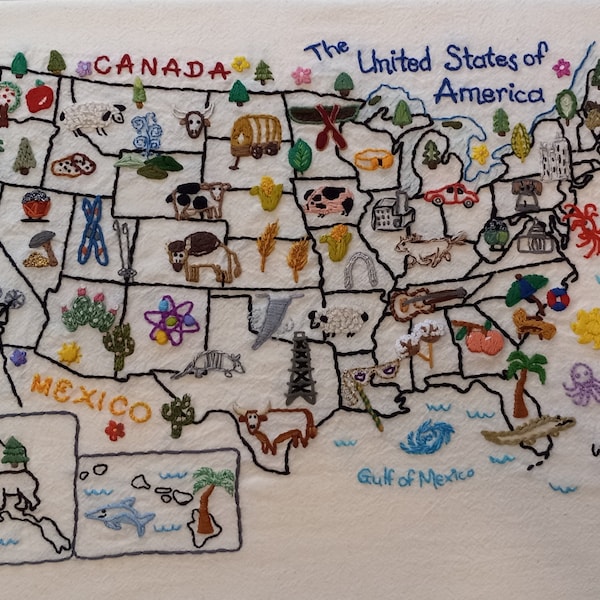 CANADA
The United States of
America
MEXICO
Gulf of Mexico